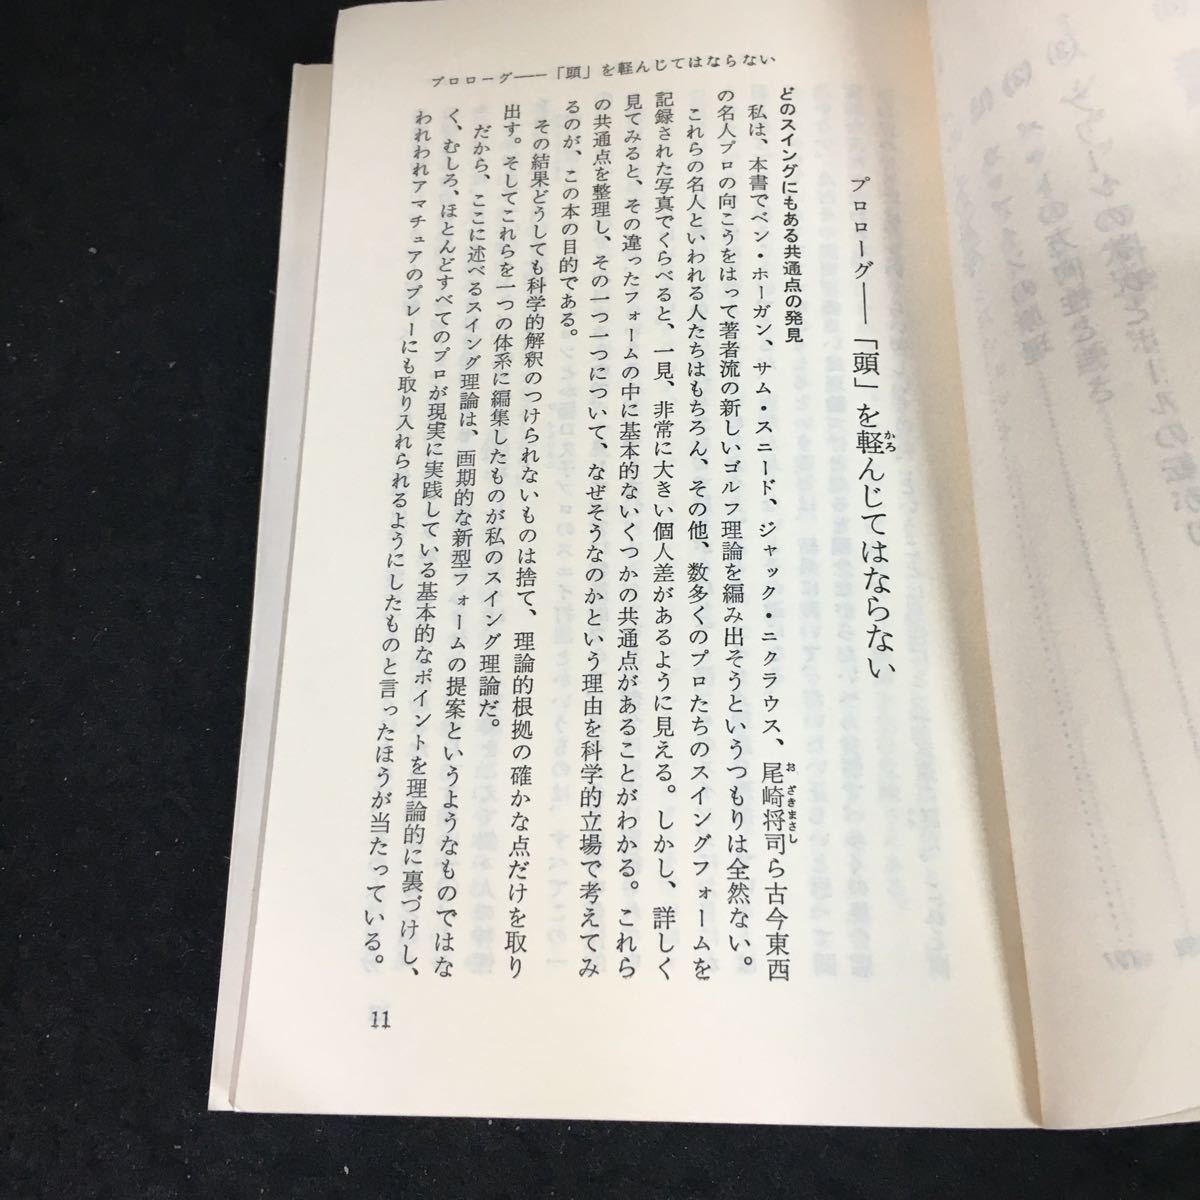 プロローグ――「頭」を軽んじてはならない
プロローグ――「頭」を軽んじてはならない
かろ
どのスイングにもある共通点の発見
私は、本書でベン・ホーガン、サム・スニード、ジャック・ニクラウス、尾崎将司ら古今東西
お ざきまさし
の名人プロの向こうをはって著者流の新しいゴルフ理論を編み出そうというつもりは全然ない。
これらの名人といわれる人たちはもちろん、その他、数多くのプロたちのスイングフォームを
記録された写真でくらべると、一見、非常に大きい個人差があるように見える。しかし、詳しく
見てみると、その違ったフォームの中に基本的ないくつかの共通点があることがわかる。これら
の共通点を整理し、その一つ一つについて、なぜそうなのかという理由を科学的立場で考えてみ
るのが、この本の目的である。
その結果どうしても科学的解釈のつけられないものは捨て、理論的根拠の確かな点だけを取り
出す。そしてこれらを一つの体系に編集したものが私のスイング理論だ。
だから、ここに述べるスイング理論は、画期的な新型フォームの提案というようなものではな
く、むしろ、ほとんどすべてのプロが現実に実践している基本的なポイントを理論的に裏づけし、
われわれアマチュアのプレーにも取り入れられるようにしたものと言ったほうが当たっている。
11